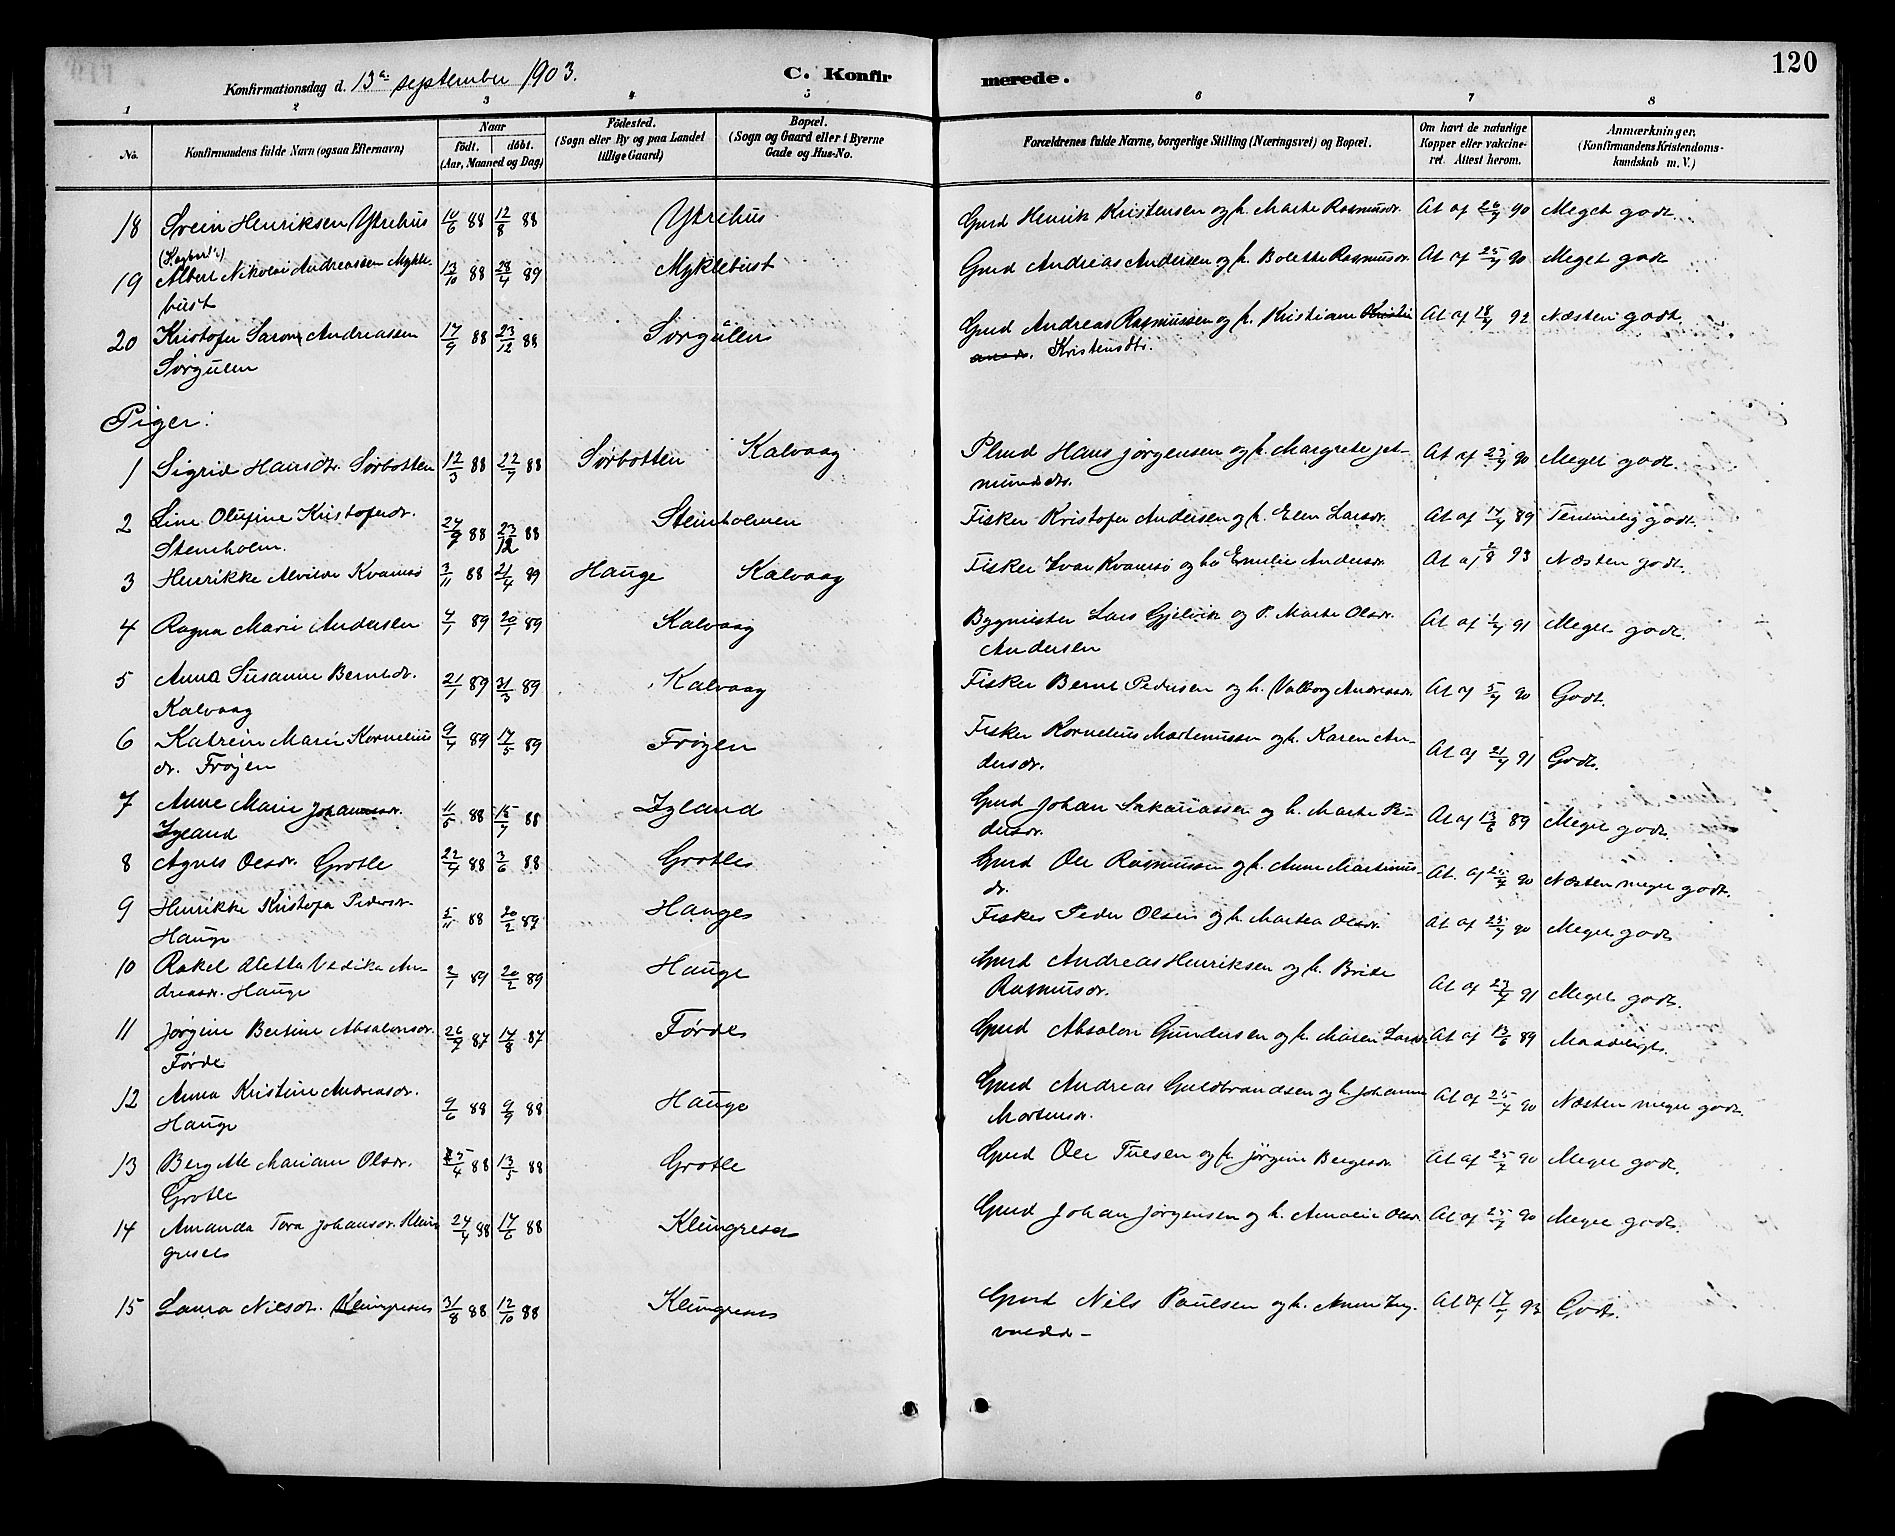 120
Konfirmationsdag d. 13de september 1903.
C. Konfirmerede.
1 2 3 4 5 6 7 8
No.
Konfirmandens fulde Navn (ogsaa Efternavn)
Naar
födt. döbt.
(Aar, Maaned og Dag)
Födested.
(Sogn eller By og paa Landet tillige Gaard)
Bopæl.
(Sogn og Gaard eller i Byerne Gade og Hus-No.
Forældrenes fulde Navne, borgerlige Stilling (Næringsvei) og Bopæl.
Om havt de naturlige Kopper eller vakcineret. Attest herom.
Anmærkninger.
(Konfirmandens Kristendomskundskab m. V.)
18 Svein Henriksen Ytrehus 10/6 88 12/8 88 Ytrehus Gmd Henrik Kristensen og h. Marte Rasmusdr. At af 26/7 90 Meget godt.
19 Albert Nikolai Andreassen Myklebust 13/10 88 28/4 89 Myklebust Gmd Andreas Andersen og h. Bolette Rasmusdr. At af 25/7 90 Meget godt
20 Kristofer Andreasen Sørgulen 17/9 88 23/12 88 Sørgulen Gmd Andreas Rasmussen og h. Kristiane Kristensdtr. At af 18/7 92 Næsten godt
Piger:
1 Sigrid Hansdr. Sørbotten 12/3 88 22/7 88 Sørbotten Kalvaag Plmd Hans Jørgensen og h. Margrete Jetmundsdr. At af 23/7 90 Meget godt.
2 Line Olufine Kristoferdr. Steinholm. 24/9 88 23/12 88 Steinholmen Fisker Kristofer Andersen og h. Elen Larsdr. At af 17/7 89 Temmelig godt.
3 Henrikke Alvilde Kvamsø 3/11 88 21/4 89 Hauge Kalvaag Fisker Ivar Kvamsø og h. Emelie Andersdr. At af 2/8 93 Næsten godt.
4 Ragna Marie Andersen 4/1 89 20/1 89 Kalvaag Bygmester Lars Gjelvik og P. Marte Olsdr. Andersen At af 1/7 91 Meget godt.
5 Anna Susanne Berntdr. Kalvaag 21/1 89 31/3 89 Kalvaag Fisker Bernt Pedersen og h. Valborg Andreasdr. At af 5/7 90 Godt.
6 Katreine Marie Korneliusdr. Frøjen 9/4 89 17/5 89 Frøyen Fisker Kornelius Martinussen og h. Karen Andersdr. At af 21/7 91 Godt.
7 Anne Marie Johannesdr. Igland 11/5 88 15/7 88 Igland Gmd Johan Sakariassen og h. Marte Pedersdr. At af 13/6 89 Meget godt.
8 Agnes Olsdr. Grotle 22/4 88 3/6 88 Grotle Gmd Ole Rasmussen og h. Anne Martinusdr. At af 25/7 90 Næsten meget godt.
9 Henrikke Kristofa Pedersdr. Hauge 5/11 88 20/2 89 Hauge Fisker Peder Olsen og h. Martea Olsdr. At af 25/7 90 Meget godt
10 Rakel Aletta Vedika Andreasdr. Hauge 2/1 89 20/2 89 Hauge Gmd Andreas Henriksen og h. Brite Rasmusdr. At af 23/7 91 Meget godt.
11 Jørgine Bertine Absalonsdr. Førde 26/7 87 14/8 87 Førde Gmd Absalon Gundersen og h. Maren Larsdr. At af 13/6 89 Maadeligt.
12 Anna Kristine Andreasdr. Hauge 9/6 88 9/9 88 Hauge Gmd Andreas Guldbrandsen og h. Johanne Mortensdr. At af 25/7 90 Næsten meget godt.
13 Bergitte Mariane Olsdr. Grotle 25/4 88 13/5 88 Grotle Gmd Ole Tuesen og h. Jørgine Bergesdr. At af 25/7 90 Meget godt.
14 Amanda Tora Johansdr. Klungreset 24/4 88 17/6 88 Klungreset Gmd Johan Jørgensen og h. Amalie Olsdr. At af 25/7 90 Meget godt.
15 Laura Nilsdr. Klungreset 31/8 88 12/10 88 Klungreset Gmd Nils Paulsen og h. Anne At af 17/7 93 Godt.